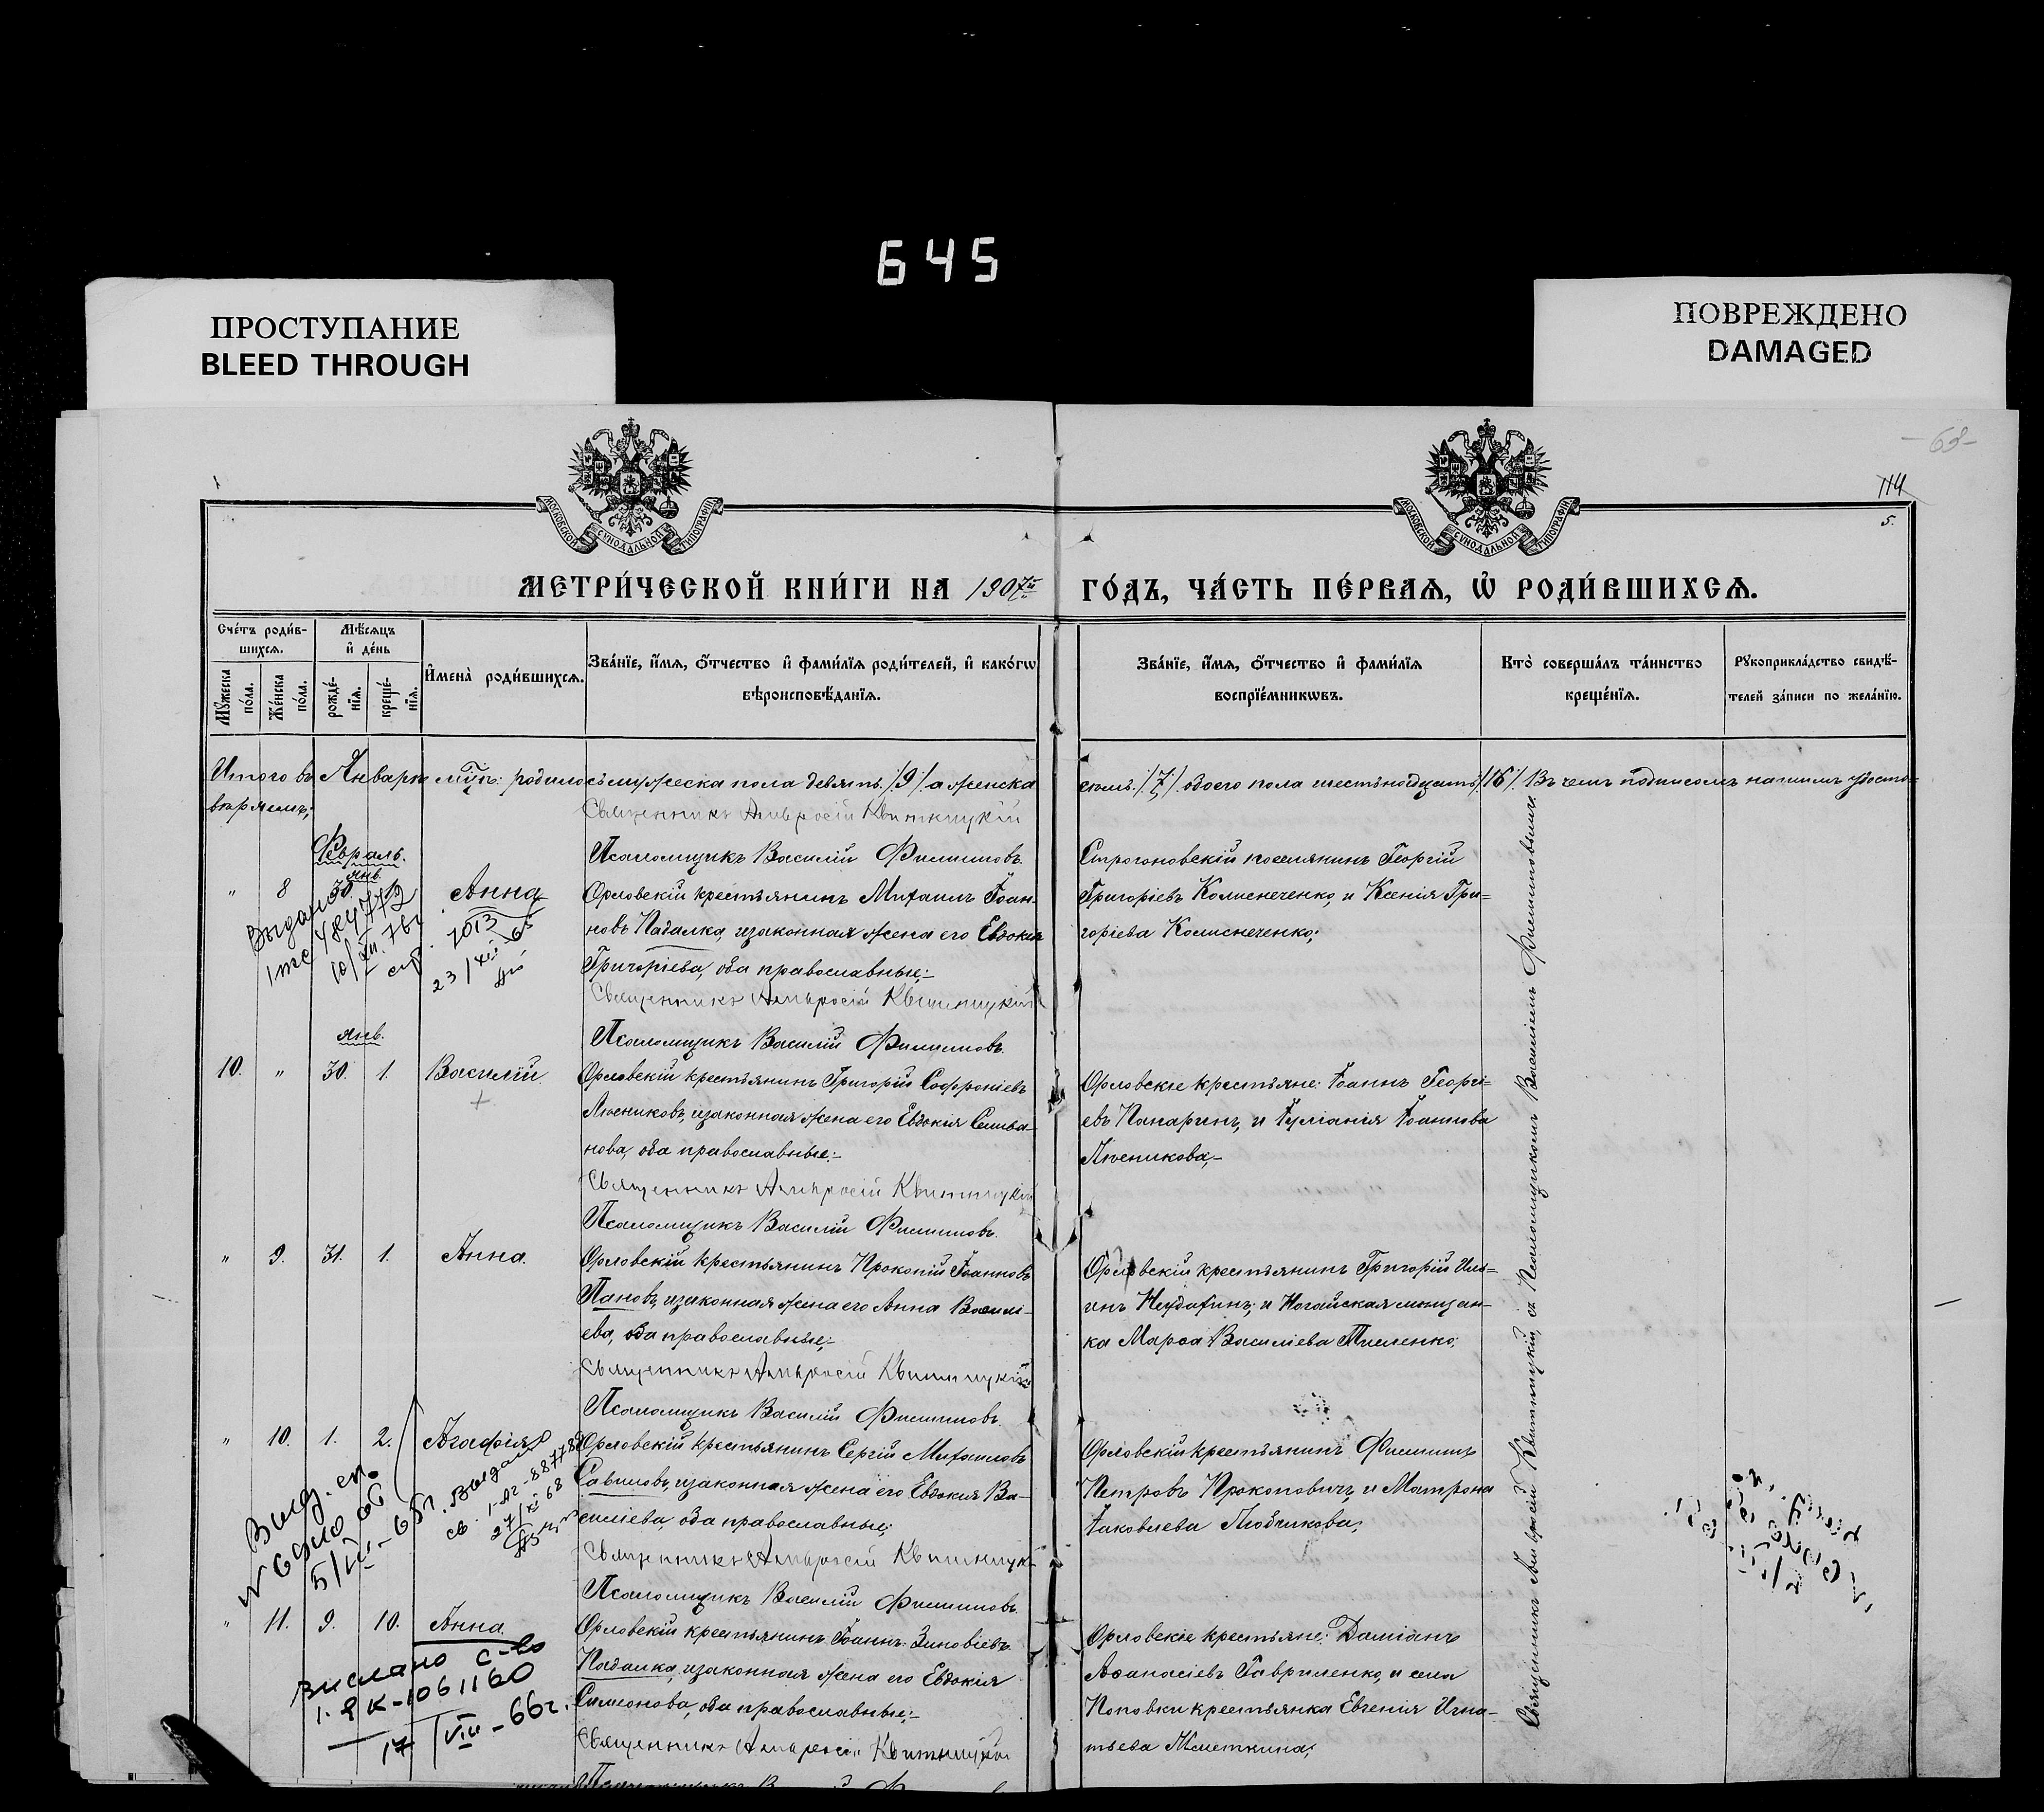 645
ПРОСТУПАНИЕ
BLEED THROUGH
ПОВРЕЖДЕНО
DAMAGED
114
5.
МОСКОВСКОЙ СУНОДАЛЬНОЙ ТИПОГРАФІИ
МОСКОВСКОЙ СУНОДАЛЬНОЙ ТИПОГРАФІИ
МЕТРИ́ЧЕСКОЙ КНИ́ГИ НА 1907й ГО́ДЪ, ЧА́СТЬ ПЕ́РВАѦ, Ѽ РОДИ́ВШИХСѦ.
Сче́тъ роди́вшихсѧ.
Мꙋ́жеска по́ла.
Же́нска по́ла.
Мѣ́сѧцъ и҆ де́нь
рожде́нїѧ.
креще́нїѧ.
И҆мена̀ роди́вшихсѧ.
Зва́нїе, и҆́мѧ, ѻ҆́тчество и҆ фами́лїѧ роди́телей, и҆ како́гѡ
вѣроисповѣ́данїѧ.
Зва́нїе, и҆́мѧ, ѻ҆́тчество и҆ фами́лїѧ
воспрїе́мникѡвъ.
Кто̀ соверша́лъ та́инство
креще́нїѧ.
Рꙋкоприкла́дство свидѣ́-
телей за́писи по жела́нїю.
Итого въ Январѣ мѣс: родилось мужеска пола девять /9/ а женска
семь /7/ обоего пола шестьнадцать /16/. Въ чемъ подписомъ нашимъ удосто=
вѣряемъ;
Священникъ Амвросій Квитницкій
Псаломщикъ Василій Филипповъ.
Февраль.
янв.
" 8 30. Анна
Орловскій крестьянинъ Михаилъ Іоан-
новъ Падалка, и законная жена его Евдокія
Григорьева, оба православные;-
Строгоновскій поселянинъ Георгій
Григоріевъ Колиснеченко, и Ксенія Гри=
горіева Колиснеченко;
1013
23/XII 65
Священникъ Амвросій Квитницкій
Псаломщикъ Василій Филипповъ.
янв.
10. " 30. 1. Василій.
Орловскій крестьянинъ Григорій Софроніевъ
Лѣсниковъ, и законная жена его Евдокія Сельва-
нова, оба православные:-
Орловскіе крестьяне: Іоаннъ Георгі=
евъ Панаринъ, и Іуліанія Іоаннова
Священникъ Амвросій Квитницкій
Псаломщикъ Василій Филипповъ.
" 9. 31. 1. Анна.
Орловскій крестьянинъ Прокопій Іоанновъ
Пановъ, и законная жена его Анна Василі-
ева, оба православные;-
Орловскій крестьянинъ Григорій Или=
инъ Неудахинъ; и Ногайская мѣщан-
ка Марѳа Василіева
Священникъ Амвросій Квитницкій
Псаломщикъ Василій Филипповъ.
" 10. 1. 2. Агафія
Орловскій крестьянинъ Сергій Михаиловъ
Савиловъ, и законная жена его Евдокія Ва-
силіева, оба православные;
Орловскій крестьянинъ Филиппъ
Петровъ Прокоповичъ, и Матрона
Іаковлева
Священникъ Амвросій Квитницк
Псаломщикъ Василій Филипповъ.
" 11. 9. 10. Анна.
Орловскій крестьянинъ Іоаннъ Зиновіевъ
Падалка, и законная жена его Евдокія
Симеонова, оба православные;-
Орловскіе крестьяне: Даміанъ
Аѳанасіевъ Гавриленко, и села
Поповки крестьянка Евгенія Игна-
тьева
Вислано с-во
1-ЯК-1061160
17/VIII-66г.
Священникъ Амвросій Квитницкій
Священникъ Амвросій Квитницкій, съ Псаломщикомъ Василіемъ Филипповымъ.